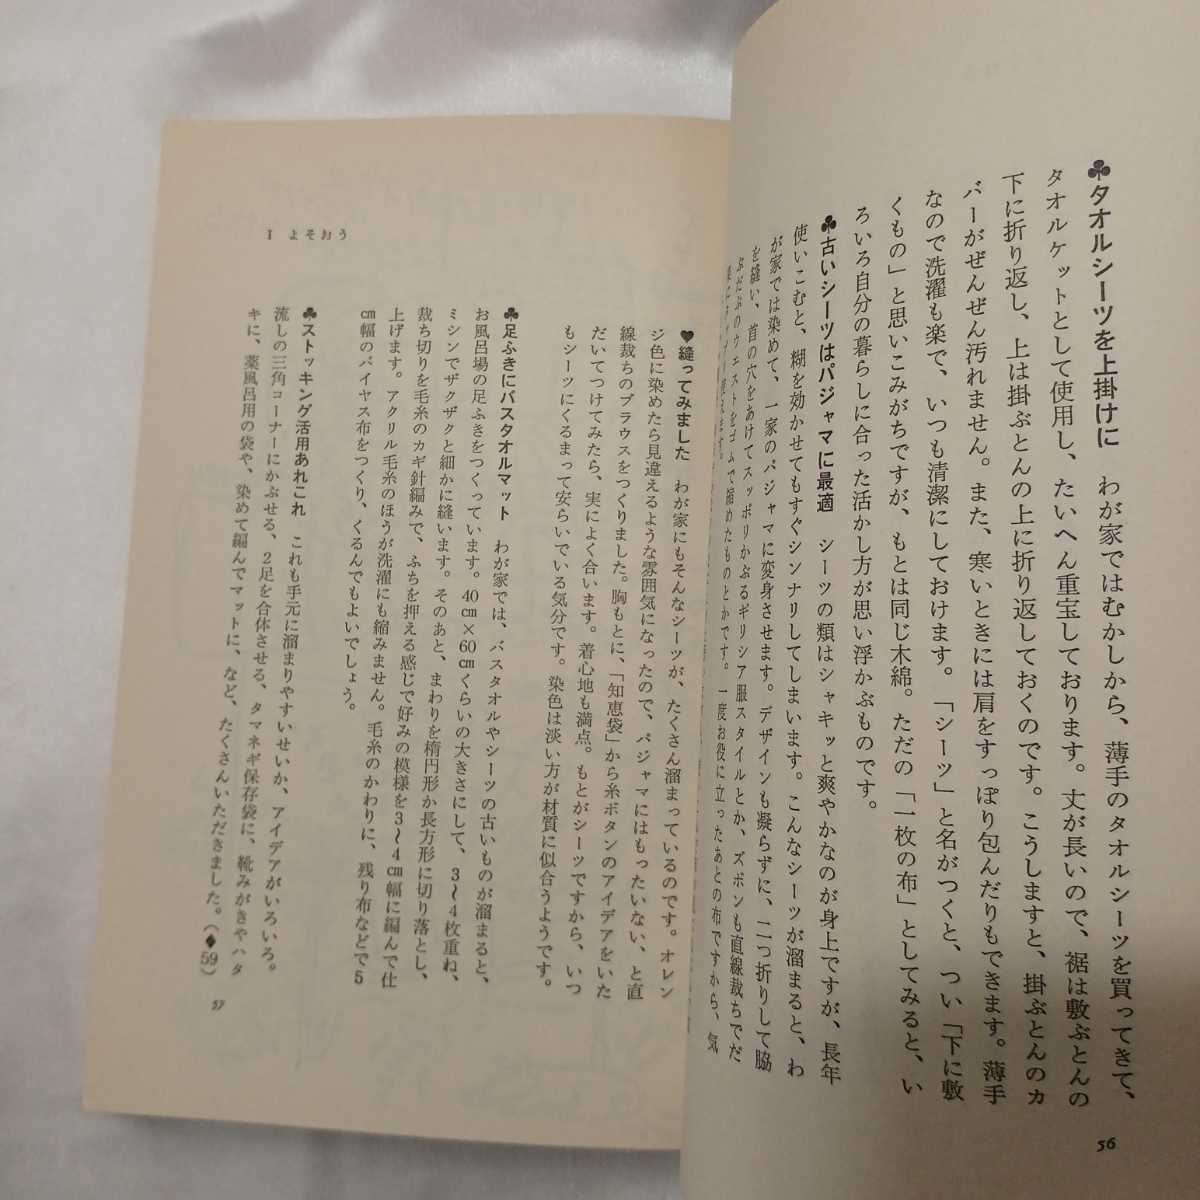 ♣タオルシーツを上掛けに　わが家ではむかしから、薄手のタオルシーツを買ってきて、
タオルケットとして使用し、たいへん重宝しております。丈が長いので、裾は敷ぶとんの
下に折り返し、上は掛ぶとんの上に折り返しておくのです。こうしますと、掛ぶとんのカ
バーがぜんぜん汚れません。また、寒いときには肩をすっぽり包んだりもできます。薄手
なので洗濯も楽で、いつも清潔にしておけます。「シーツ」と名がつくと、つい「下に敷
くもの」と思いこみがちですが、もとは同じ木綿。ただの「一枚の布」としてみると、い
ろいろ自分の暮らしに合った活かし方が思い浮かぶものです。
♣古いシーツはパジャマに最適　シーツの類はシャキッと爽やかなのが身上ですが、長年
使いこむと、糊を効かせてもすぐシンナリしてしまいます。こんなシーツが溜まると、わ
が家では染めて、一家のパジャマに変身させます。デザインも凝らずに、二つ折りして脇
を縫い、首の穴をあけてスッポリかぶるギリシア服スタイルとか、ズボンも直線裁ちでだ
ぶだぶのウエストをゴムで縮めたものとかです。一度お役に立ったあとの布ですから、気
56
♥縫ってみました　わが家にもそんなシーツが、たくさん溜まっているのです。オレン
ジ色に染めたら見違えるような雰囲気になったので、パジャマにはもったいない、と直
線裁ちのブラウスをつくりました。胸もとに、「知恵袋」から糸ボタンのアイデアをいた
だいてつけてみたら、実によく合います。着心地も満点。もとがシーツですから、いつ
もシーツにくるまって安らいでいる気分です。染色は淡い方が材質に似合うようです。
♣足ふきにバスタオルマット　わが家では、バスタオルやシーツの古いものが溜まると、
お風呂場の足ふきをつくっています。40㎝×60㎝くらいの大きさにして、3〜4枚重ね、
ミシンでザクザクと細かに縫います。そのあと、まわりを楕円形か長方形に切り落とし、
裁ち切りを毛糸のカギ針編みで、ふちを押える感じで好みの模様を3〜4㎝幅に編んで仕
上げます。アクリル毛糸のほうが洗濯にも縮みません。毛糸のかわりに、残り布などで5
㎝幅のバイヤス布をつくり、くるんでもよいでしょう。
♣ストッキング活用あれこれ　これも手元に溜まりやすいせいか、アイデアがいろいろ。
流しの三角コーナーにかぶせる、2足を合体させる、タマネギ保存袋に、靴みがきやハタ
キに、薬風呂用の袋や、染めて編んでマットに、など、たくさんいただきました。(♦59)
I よそおう
57